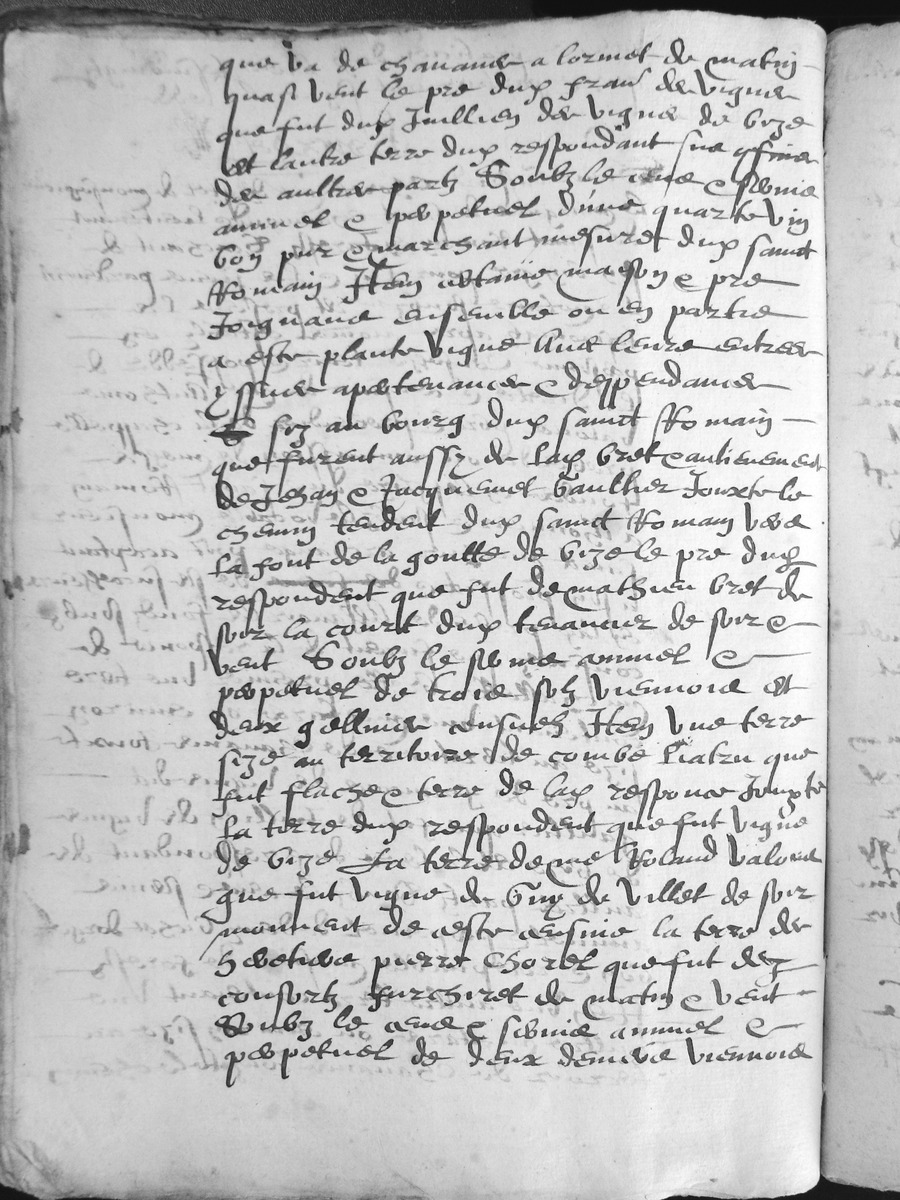 que va de chanave a lormet de matin
quasi vent le pre dud fran des vignes
que fut dud Jullien des vignes de bize
et lautre terre dud respondant sus confines
des aultres partz Soubz le cens & servis
annuel & perpetuel dune quarte vin
bon pur & marchant mesure dud sainct
Romain Item certaine maison & pre
Joignans ensemble ou en partie
a este plante vigne Avec leurs entrees
yssues apertenances & deppendances
siz au bourg dud sainct Romain
que furent aussy de lad bret & antienement
de Jehan & Jacquemet Gaultier Jouxte le
chemin tendent dud sainct Romain vers
la font de la goutte de bize le pre dud
respondent que fut de mathieu bret de
soir la court dud tenancier de soir &
vent Soubz le servis annuel &
perpetuel de trois solz viennois et
deux gellines censives Item une terre
size au territoire de combe liatru que
fut flache & terre de lad responce Jouxte
la terre dud respondent que fut vigne
de bize La terre de me Roland valous
que fut vigne de Guy de villet de soir
mouvent de ceste censive la terre des
hertiers pierre Chorel que fut dez
consortz furchiret de matin & vent
Soubz le cens & servis annuel &
perpetuel de deux deniers viennois